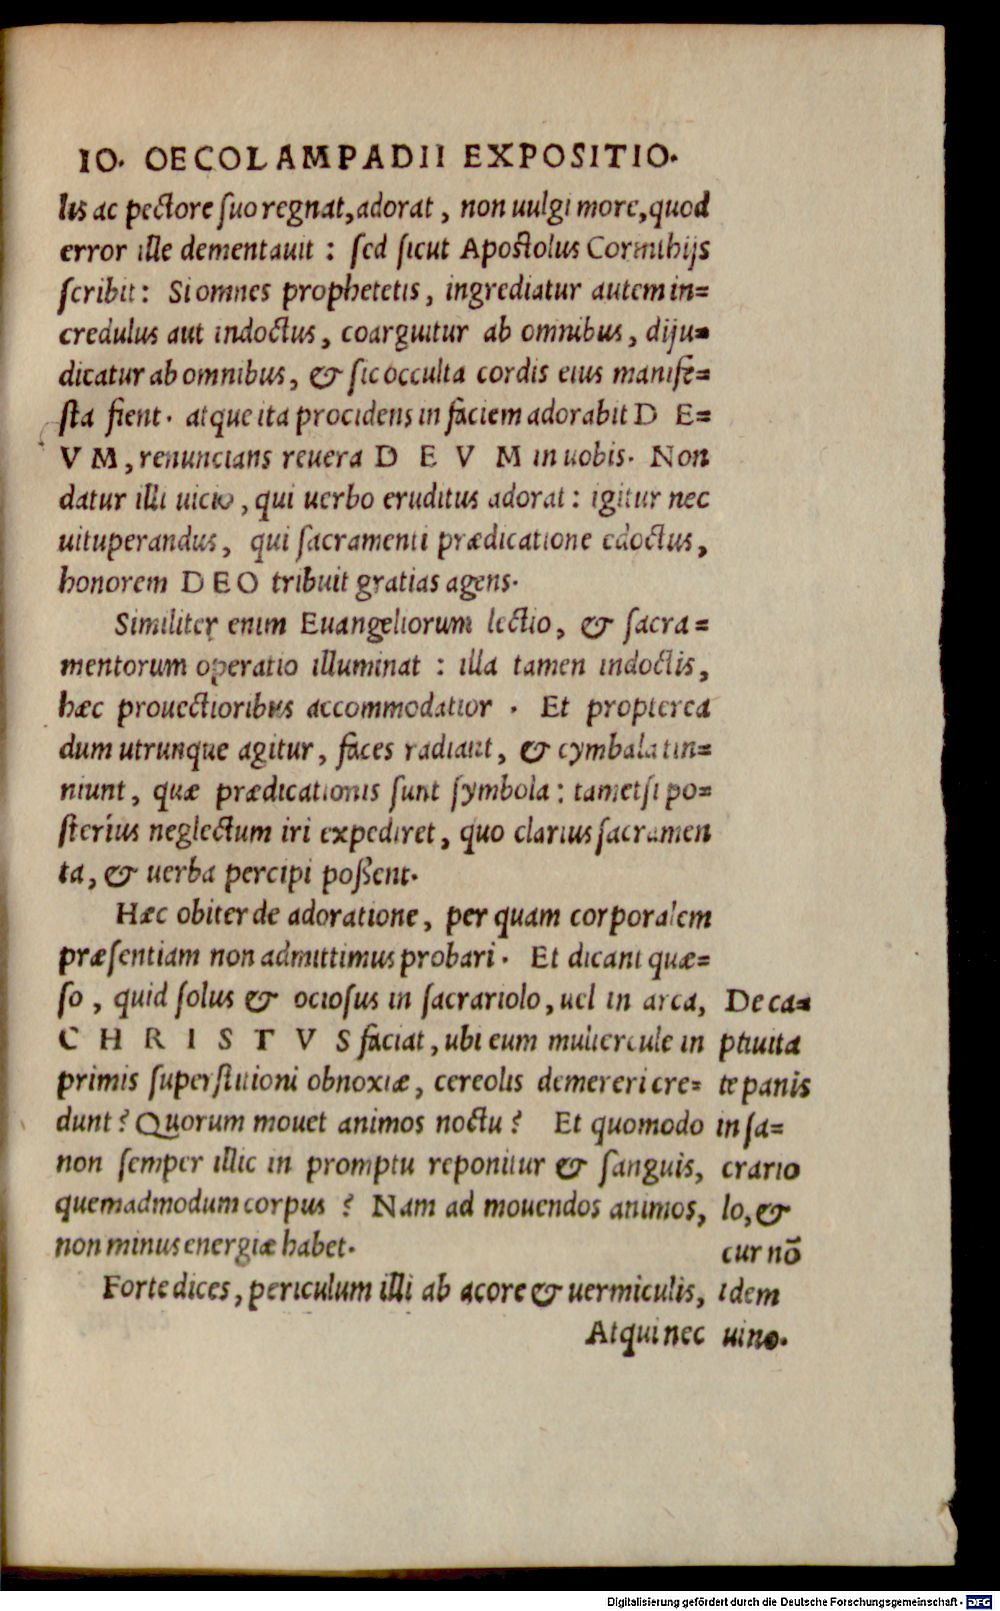 IO. OECOLAMPADII EXPOSITIO.
lis ac pectore suo regnat, adorat, non uulgi more, quod
error ille dementauit: sed sicut Apostolus Corinthijs
scribit: Si omnes prophetetis, ingrediatur autem in=
credulus aut indoctus, coarguitur ab omnibus, diju=
dicatur ab omnibus, & sic occulta cordis eius manife=
sta fient. atque ita procidens in faciem adorabit D E=
V M, renuncians reuera D E V M in uobis. Non
datur illi uicio, qui uerbo eruditus adorat: igitur nec
uituperandus, qui sacramenti prædicatione edoctus,
honorem DEO tribuit gratias agens.
Similiter enim Euangeliorum lectio, & sacra=
mentorum operatio illuminat: illa tamen indoctis,
hæc prouectioribus accommodatior. Et propterea
dum utrunque agitur, faces radiant, & cymbala tin=
niunt, quæ prædicationis sunt symbola: tametsi po=
sterius neglectum iri expediret, quo clarius sacramen
ta, & uerba percipi poßent.
Hæc obiter de adoratione, per quam corporalem
præsentiam non admittimus probari. Et dicant quæ=
so, quid solus & ociosus in sacrariolo, uel in arca,
C H R I S T V S faciat, ubi eum muliercule in
primis superstitioni obnoxiæ, cereolis demereri cre=
dunt? Quorum mouet animos noctu? Et quomodo
non semper illic in promptu reponitur & sanguis,
quemadmodum corpus? Nam ad mouendos animos,
non minus energiæ habet.
Forte dices, periculum illi ab acore & uermiculis,
Atqui nec
De ca=
ptiuita
te panis
in sa=
crario
lo, &
cur nō
idem
uino.
Digitalisierung gefördert durch die Deutsche Forschungsgemeinschaft - DFG